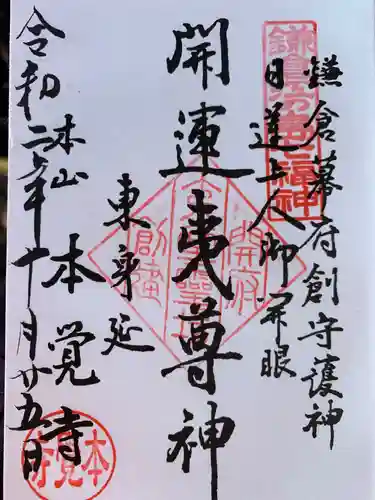 鎌倉幕府創守護神
日蓮上人御開眼
開運夷尊神
東身延
本山 本覚寺
令和二年十月廿五日
鎌倉江の島七福神
本覚寺